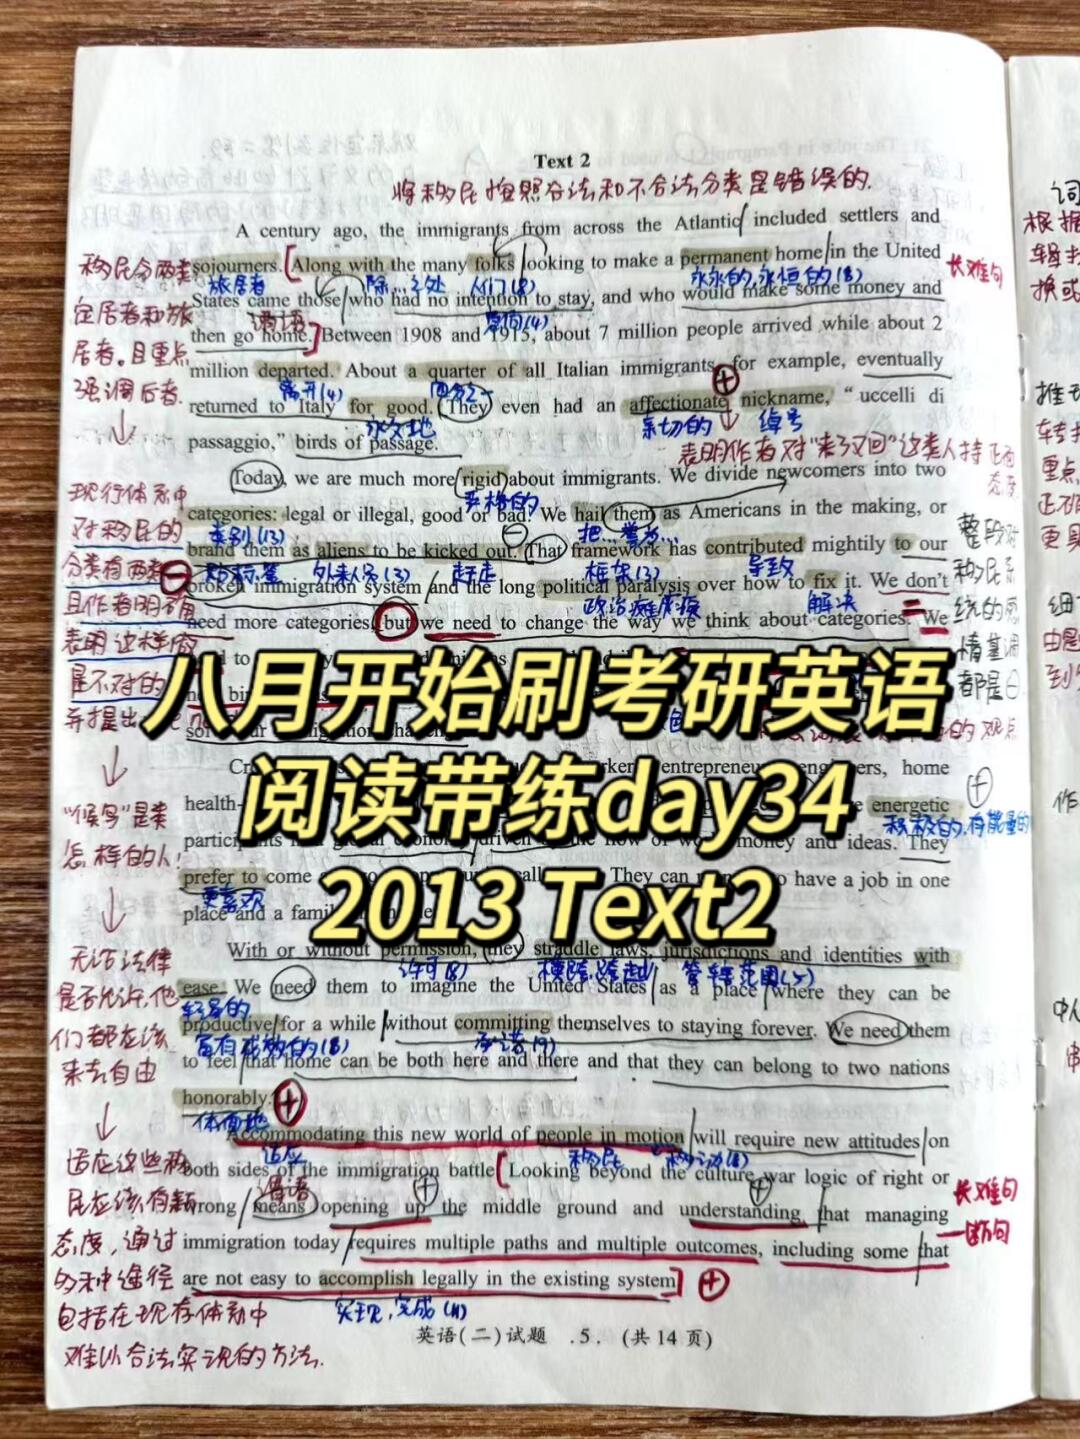 Text 2
将移民按照合法和不合法分类是错误的.
A century ago, the immigrants from across the Atlantic included settlers and
移民分两类
sojourners. Along with the many folks looking to make a permanent home in the United
长难句
旅居者 除…之处 人们(8) 永久的,永恒的(8)
States came those who had no intention to stay, and who would make some money and
定居者和旅
谓语 意向(4)
then go home. Between 1908 and 1915, about 7 million people arrived while about 2
居者。且重点
million departed. About a quarter of all Italian immigrants, for example, eventually
强调后者.
离开(4) 四分之一
returned to Italy for good. They even had an affectionate nickname, “uccelli di
永久地 亲切的 绰号
passaggio,” birds of passage.
表明作者对“来了又回”这类人持正面
态度
Today, we are much more rigid about immigrants. We divide newcomers into two
现行体系中
严格的
categories: legal or illegal, good or bad. We hail them as Americans in the making, or
对移民的
类别(13) 把…誉为…
brand them as aliens to be kicked out. That framework has contributed mightily to our
分类有两类
贴标签 外来人员(3) 赶走 框架(3) 导致
broken immigration system and the long political paralysis over how to fix it. We don't
且作者明确
政治瘫痪 解决
need more categories, but we need to change the way we think about categories. We
表明这样做
是不对的
并提出
整段对
移民系
统的感
情基调
都是⊖
八月开始刷考研英语
阅读带练day34
2013 Text2
entrepreneurs, home
health-
energetic
“候鸟”是类
积极的,有能量的
participants in a global economy driven by the flow of work, money and ideas. They
怎样的人!
prefer to come
They can
to have a job in one
更喜欢
place and a family
With or without permission, they straddle laws, jurisdictions and identities with
无论法律
许可(8) 横跨,跨越 管辖范围(5)
ease. We need them to imagine the United States as a place where they can be
是否允许,他
轻易的
productive for a while without committing themselves to staying forever. We need them
们都应该
富有成效的(8) 承诺(9)
to feel that home can be both here and there and that they can belong to two nations
来去自由
honorably.
体面地
Accommodating this new world of people in motion will require new attitudes on
适应 移民 移动(8)
适应这些移
both sides of the immigration battle. Looking beyond the culture war logic of right or
谓语
长难句
民应该有新
wrong means opening up the middle ground and understanding that managing
一断句
态度,通过
immigration today requires multiple paths and multiple outcomes, including some that
多种途径
are not easy to accomplish legally in the existing system.
包括在现存体系中
实现,完成(11)
英语(二)试题 .5. (共14页)
难以合法实现的方法.
词
根据
换或
推
重点
细
由是
到
作